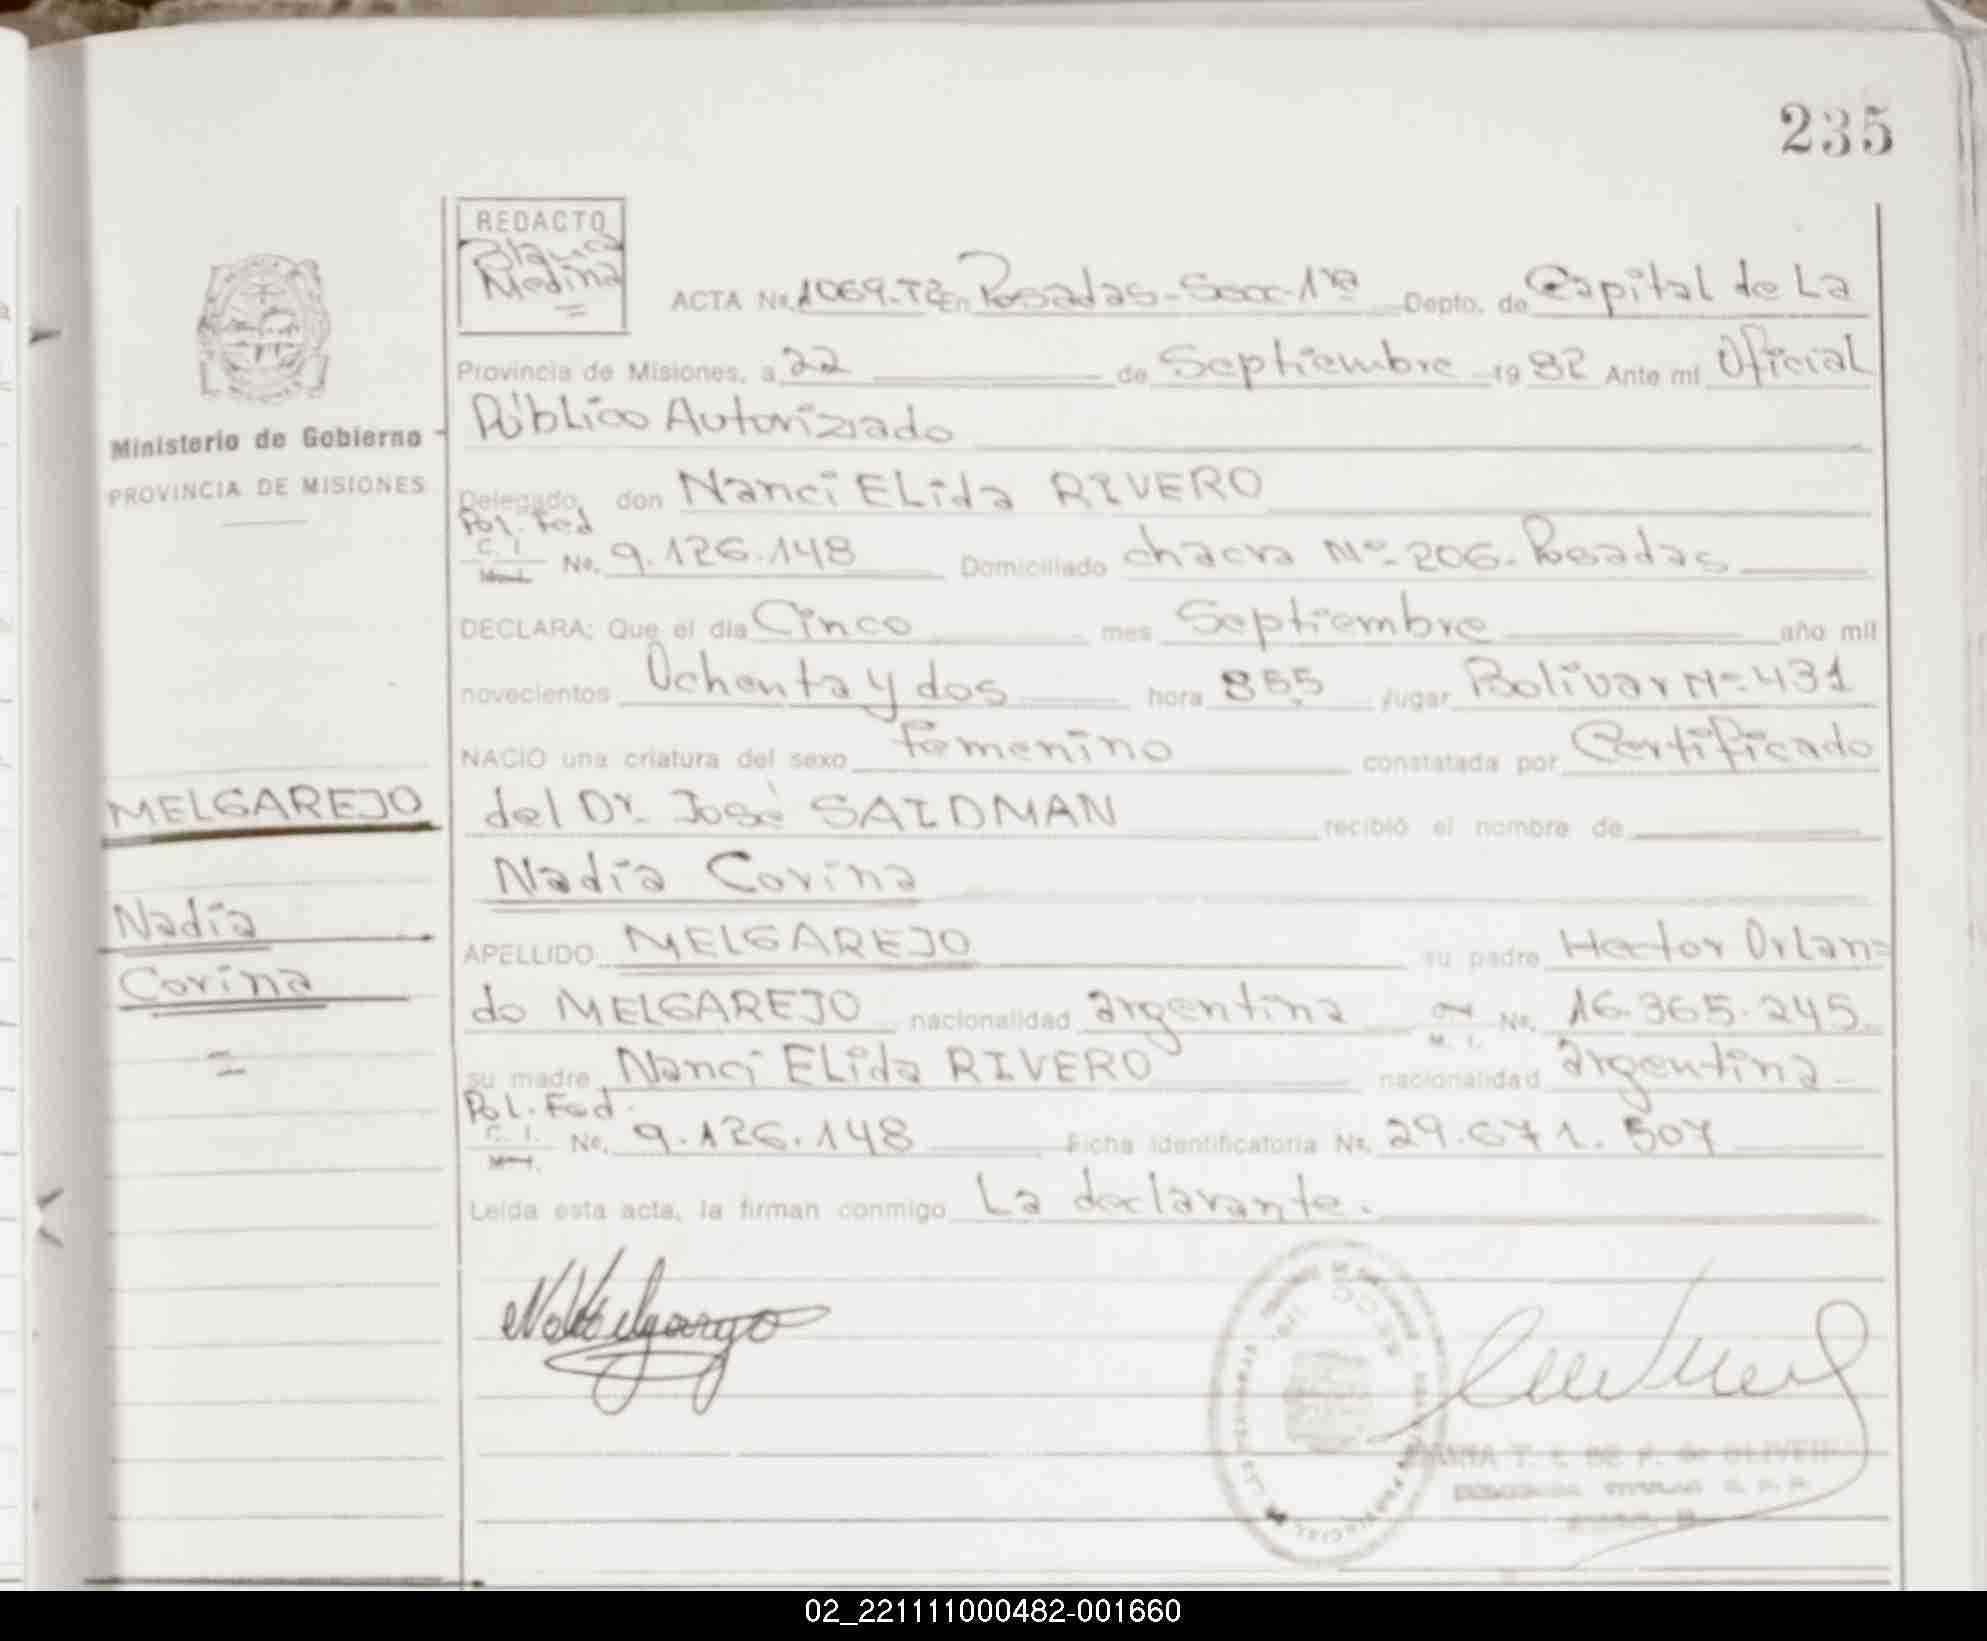 235
REDACTO
Medina
=
ACTA No. 1069-T2 En Posadas-Secc-1ra Depto. de Capital de La
Provincia de Misiones, a 22 de Septiembre 1982 Ante mi Oficial
Público Autorizado
Delegado, don Nanci ELida RIVERO
Pol. Fed
C. I.
No. 9.126.148 Domiciliado chacra No-206-Posadas
DECLARA: Que el día Cinco mes Septiembre año mil
novecientos Ochenta y dos hora 855 lugar Bolivar No-431
NACIO una criatura del sexo femenino constatada por Certificado
del Dr. José SAIDMAN recibió el nombre de
Nadia Corina
APELLIDO MELGAREJO su padre Hector Orlan=
do MELGAREJO nacionalidad argentina M. I. No. 16.365.245
su madre Nanci ELida RIVERO nacionalidad argentina
Pol. Fed.
C. I.
No. 9.126.148 Ficha identificatoria No. 29.671.507
Leída esta acta, la firman conmigo La declarante.
Ministerio de Gobierno
PROVINCIA DE MISIONES
MELGAREJO
Nadia
Corina
=
02_221111000482-001660